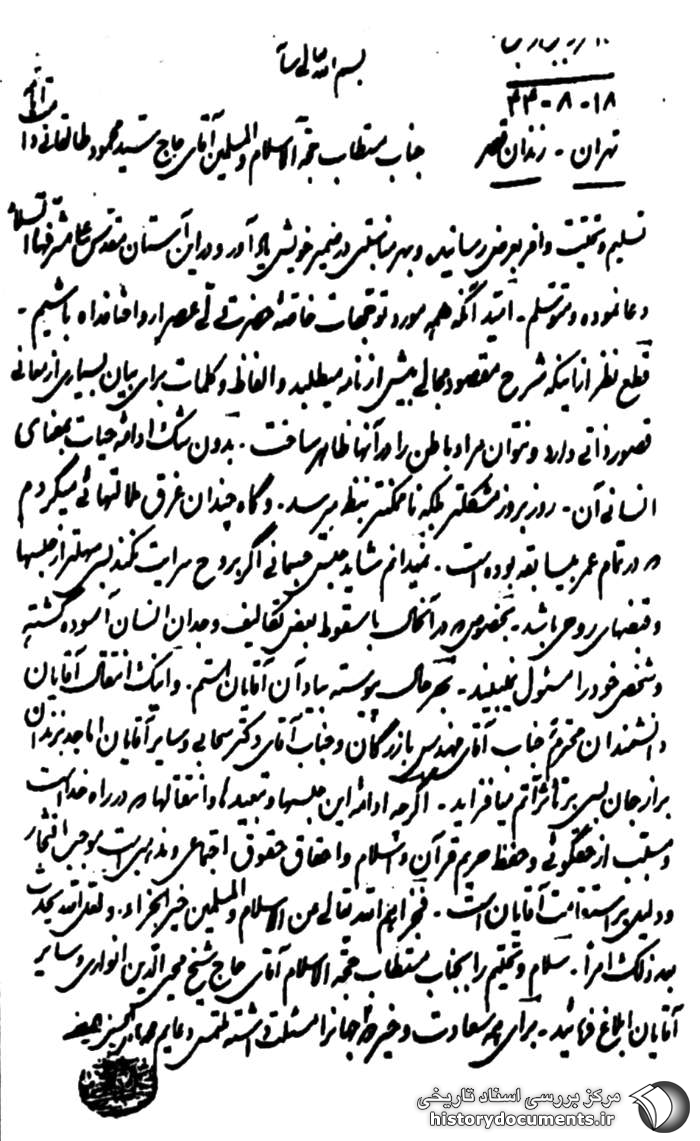 بسم الله تعالی شأنه
۱۸-۸-۴۴
تهران - زندان قصر
جناب مستطاب حجة الاسلام والمسلمین آقای حاج سید محمود طالقانی دامت
تسلیم و تحیت وافر بعرض رسانیده و بهر مناسبتی در ضمیر خویش یاد آور و در این آستان مقدس علی مشرفها السلام
دعا نموده و متوسلم - امید آنکه همه مورد توجهات خاصهٔ حضرت ولی عصر ارواحنا فداه باشیم -
قطع نظر از اینکه شرح مقصود مجالی بیش از نامه میطلبد و الفاظ و کلمات برای بیان بسیاری از معانی
قصور ذاتی دارد و نتوان مراد باطن را در آنها ظاهر ساخت - بدون شک ادامهٔ حیات بمعنای
انسانی آن - روز بروز مشکلتر بلکه ناممکنتر بنظر میرسد - و گاه چندان غرق ملالتهائی میگردم
که در تمام عمر بیسابقه بوده است - نمیدانم شاید حبس جسمانی اگر بروح سرایت نکند بسی سهلتر از حبسها
و قبضهای روحی باشد - بخصوص که در آنحال با سقوط بعض تکالیف وجدان انسان آسوده گشته
و شخص خود را مسئول نمیبیند - بهر حال پیوسته بیاد آن آقایان هستم - و اینک انتقال آقایان
دانشمندان محترم جناب آقای مهندس بازرگان و جناب آقای دکتر سحابی و سایر آقایان اماجد بزندان
برازجان بسی بر تأثراتم بیافزاید - اگر چه ادامهٔ این حبسها و تبعیدها و انتقالها که در راه خداست
و مسبب از حقگوئی و حفظ حریم قرآن و اسلام و احقاق حقوق اجتماعی و مذهبی است موجب افتخار
و دلیل بر استقامت آقایان است - فجزاهم الله تعالی عن الاسلام والمسلمین خیر الجزاء - و لعل الله یحدث
بعد ذلک امراً - سلام و تحیتم را بجناب مستطاب حجة الاسلام آقای حاج شیخ محیی الدین انواری و سایر
آقایان ابلاغ فرمائید - برای همه سعادت و خیر دو جهان را مسئلت داشته ملتمس دعایم
مرکز بررسی اسناد تاریخی
historydocuments.ir